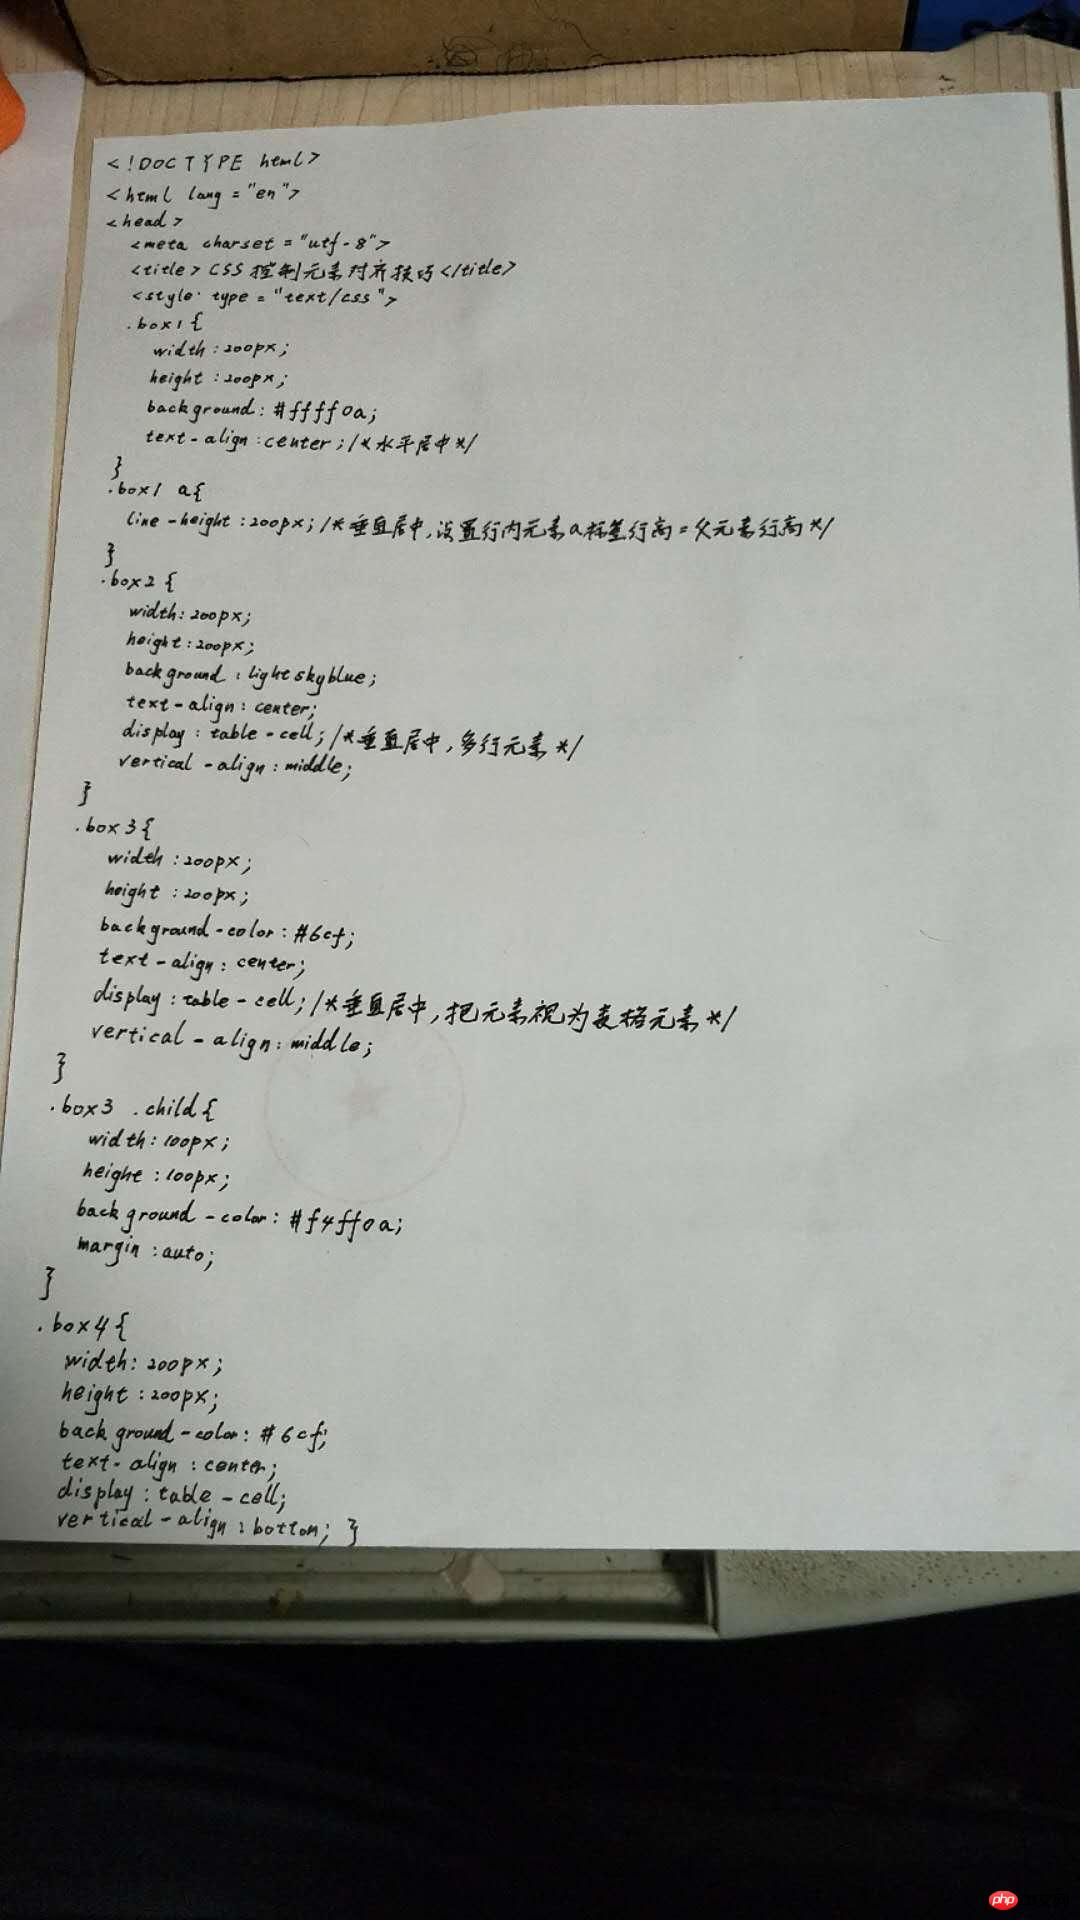 <!DOCTYPE html>
<html lang="en">
<head>
<meta charset="utf-8">
<title>CSS控制元素对齐技巧</title>
<style type="text/css">
.box1{
width:200px;
height:200px;
background:#ffff0a;
text-align:center;/*水平居中*/
}
.box1 a{
line-height:200px;/*垂直居中,设置行内元素a标签行高=父元素行高*/
}
.box2{
width:200px;
height:200px;
background:lightskyblue;
text-align:center;
display:table-cell;/*垂直居中,多行元素*/
vertical-align:middle;
}
.box3{
width:200px;
height:200px;
background-color:#6cf;
text-align:center;
display:table-cell;/*垂直居中,把元素视为表格元素*/
vertical-align:middle;
}
.box3 .child{
width:100px;
height:100px;
background-color:#f4ff0a;
margin:auto;
}
.box4{
width:200px;
height:200px;
background-color:#6cf;
text-align:center;
display:table-cell;
vertical-align:botton;}
php